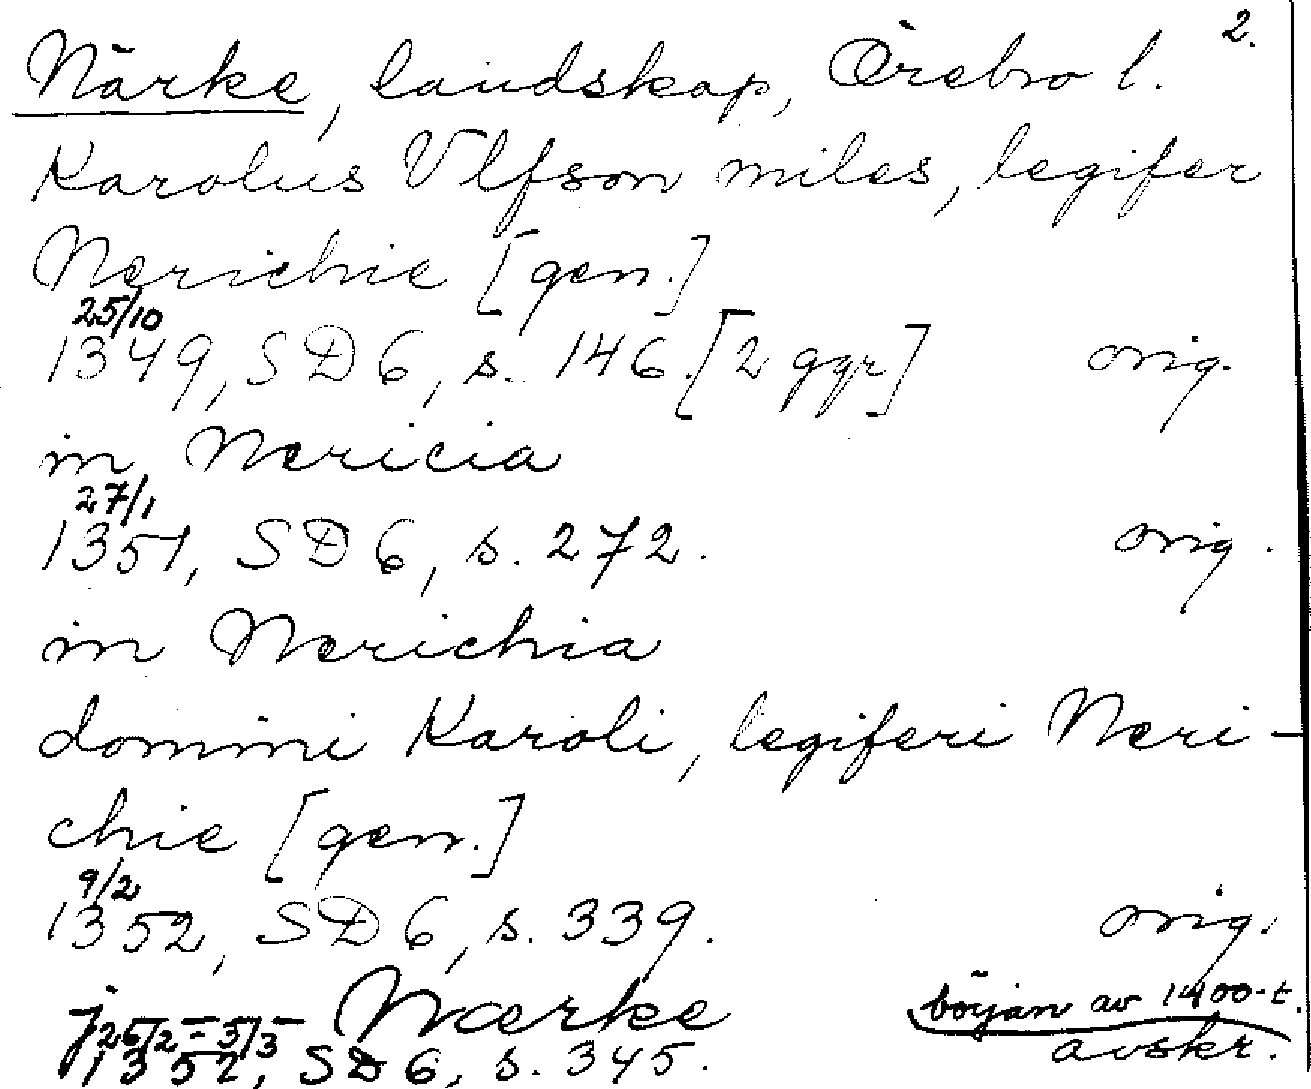 2.
Närke, landskap, Örebro l.
Karolus Vlfson miles, legifer
Nerichie [gen.]
25/10
1349, SD 6, s. 146. [2 ggr] orig.
in Nericia
27/1
1351, SD 6, s. 272. orig.
in Nerichia
domini Karoli, legiferi Neri-
chie [gen.]
9/2
1352, SD 6, s. 339. orig.
j Nærke början av 1400-t.
26/2-5/3
1352, SD 6, s. 345. avskr.